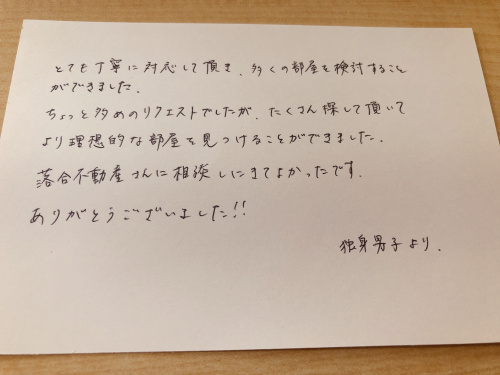 とても丁寧に対応して頂き、多くの部屋を検討すること
ができました.
ちょっと多めのリクエストでしたが、たくさん探して頂いて
より理想的な部屋を見つけることができました.
落合不動産さんに相談しにきてよかったです.
ありがとうございました!!
独身男子より.